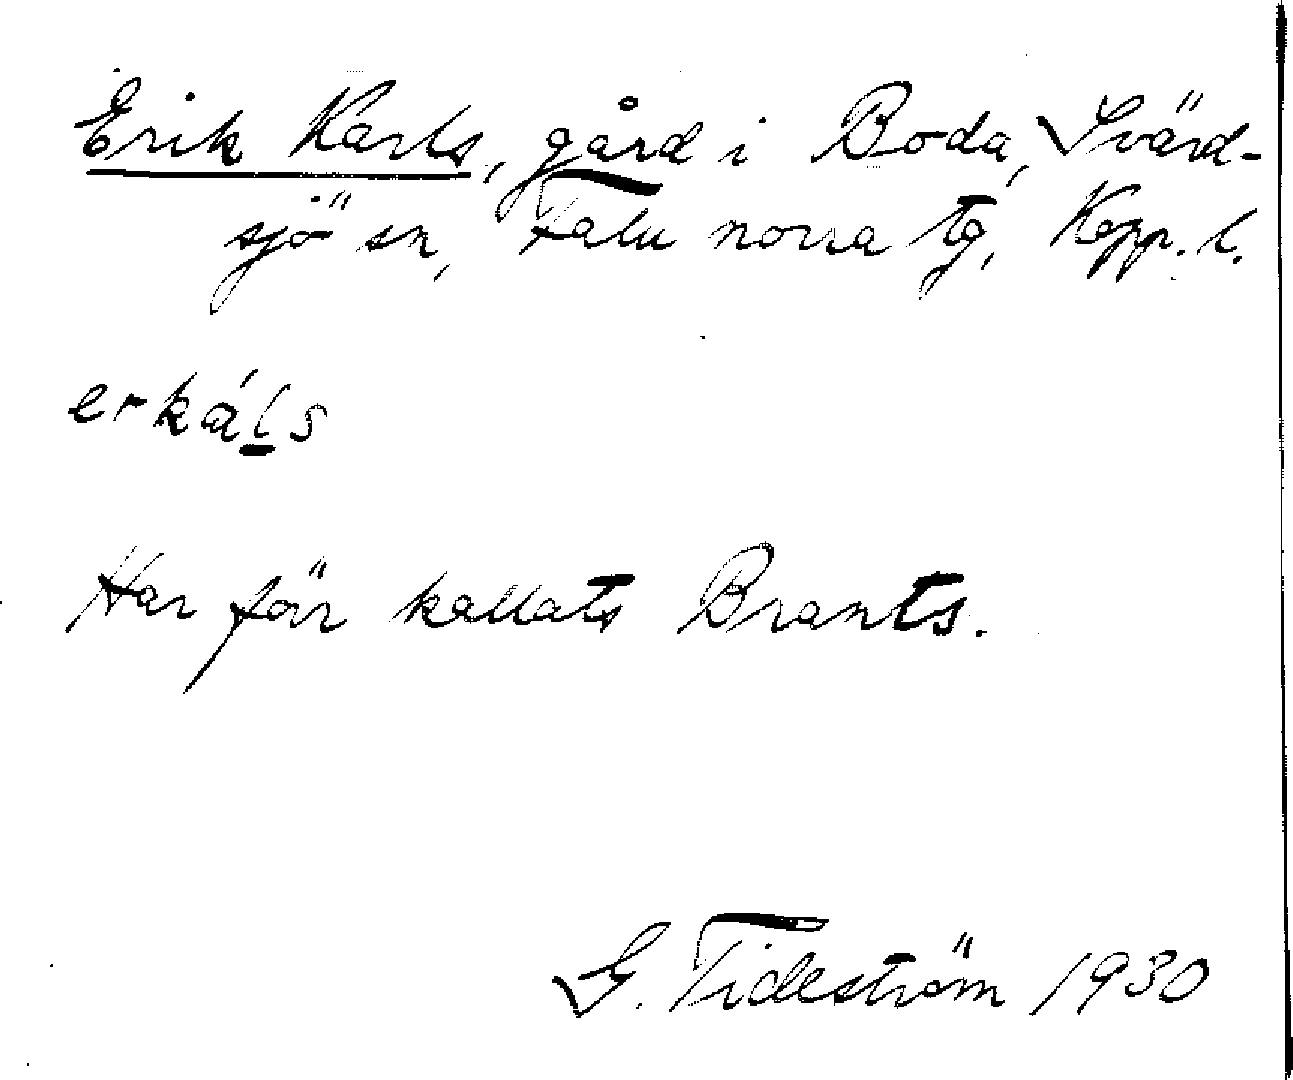 Erik Karls, gård i Boda, Svärd-
sjö sn, Falu norra tg, Kopp. l.
erkáḻs
Har förr kallats Brants.
G. Tideström 1930